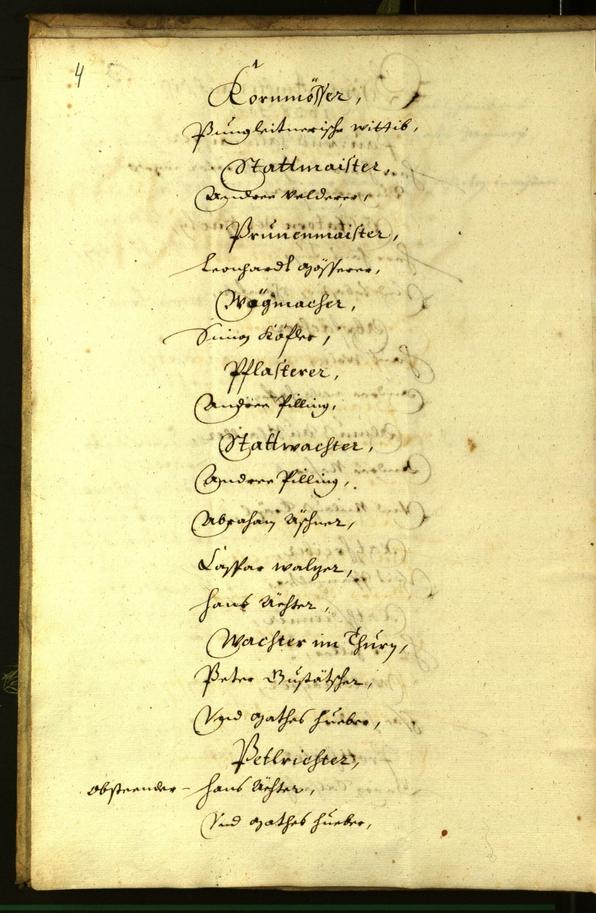 4
Kornmösser,
Prungleitnerische wittib,
Stattmaister,
Andree Velderer,
Prunenmaister,
Leonhardt Gösserer,
Wögmacher,
Simon Kofler,
Pflasterer,
Andree Pilling,
Stattwachter,
Andree Pilling,
Abraham Äschner,
Caspar walzer,
hans Uchter,
Wachter im Thurn,
Peter Gustätscher,
Und Mathes hueber,
Petlrichter,
obsteender - hans Uchter,
Und Mathes hueber,